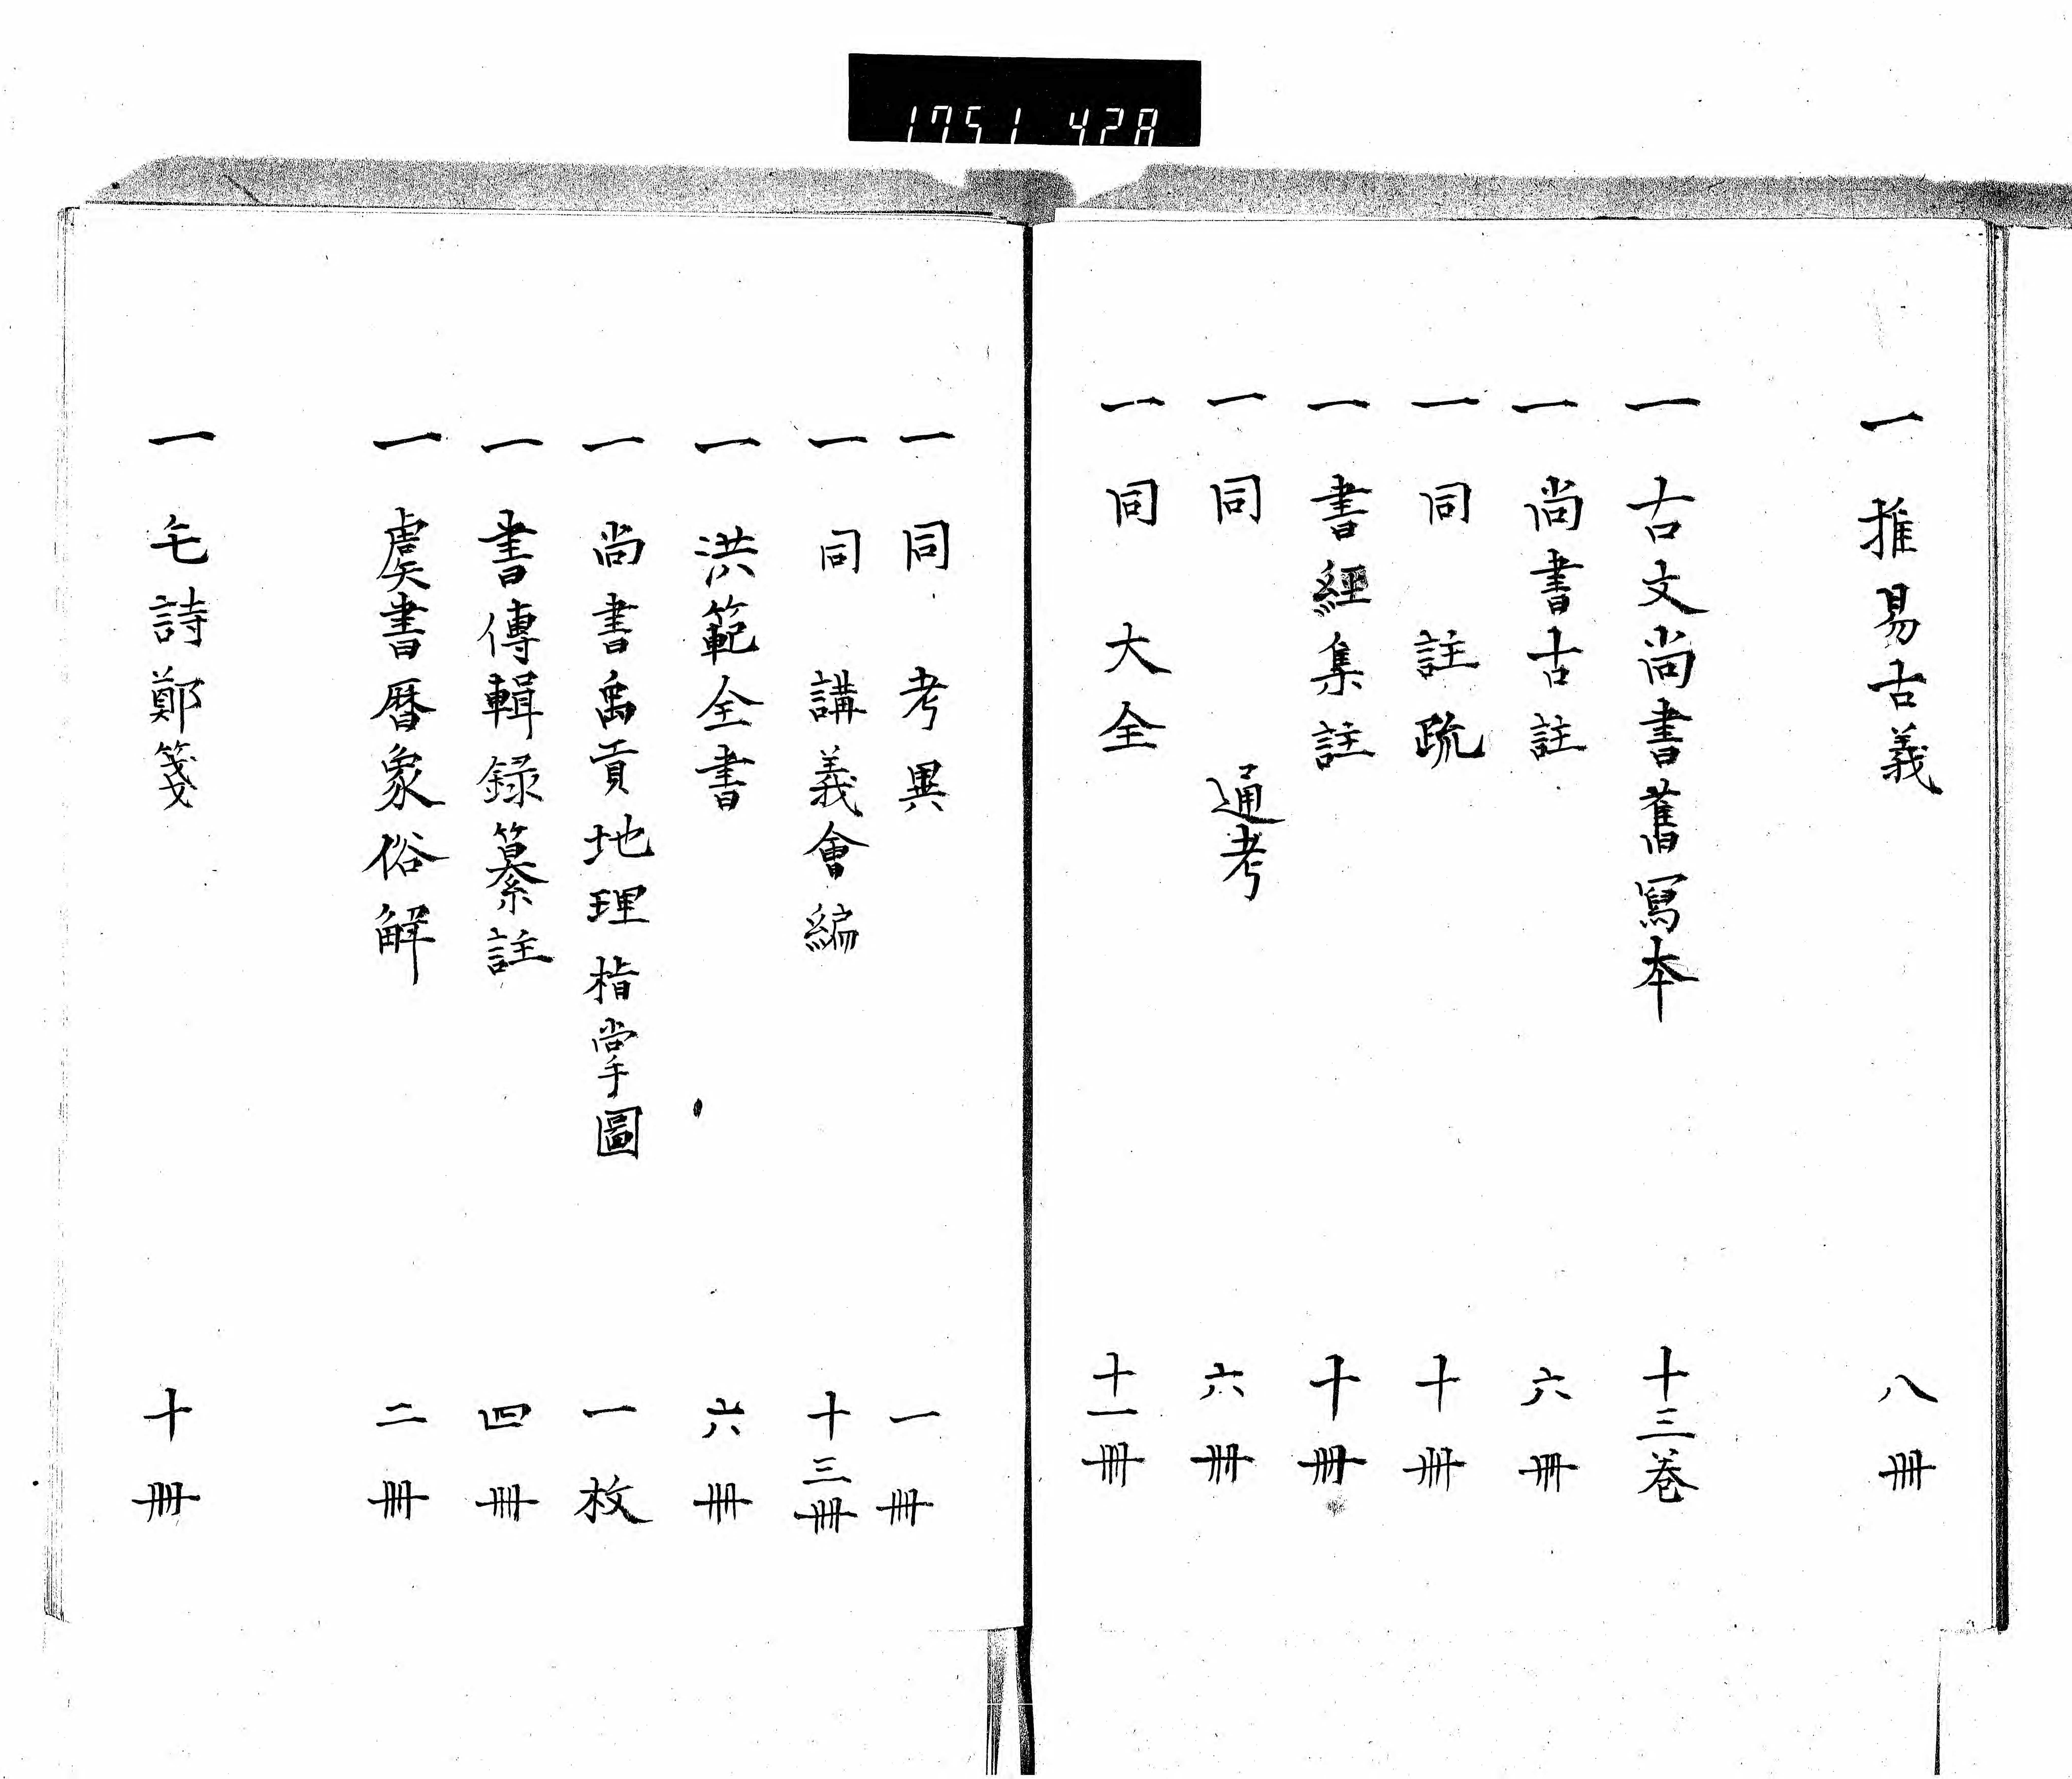 1751 428
一推易古義 八冊
一古文尚書舊寫本 十三卷
一尚書古註 六冊
一同 註疏 十冊
一書經集註 十冊
一同 通考 六冊
一同 大全 十一冊
一同 考異 一冊
一同 講義會編 十三冊
一洪範全書 六冊
一尚書禹貢地理指掌圖 一枚
一書傳輯録纂註 四冊
一虞書暦象俗解 二冊
一毛詩鄭箋 十冊